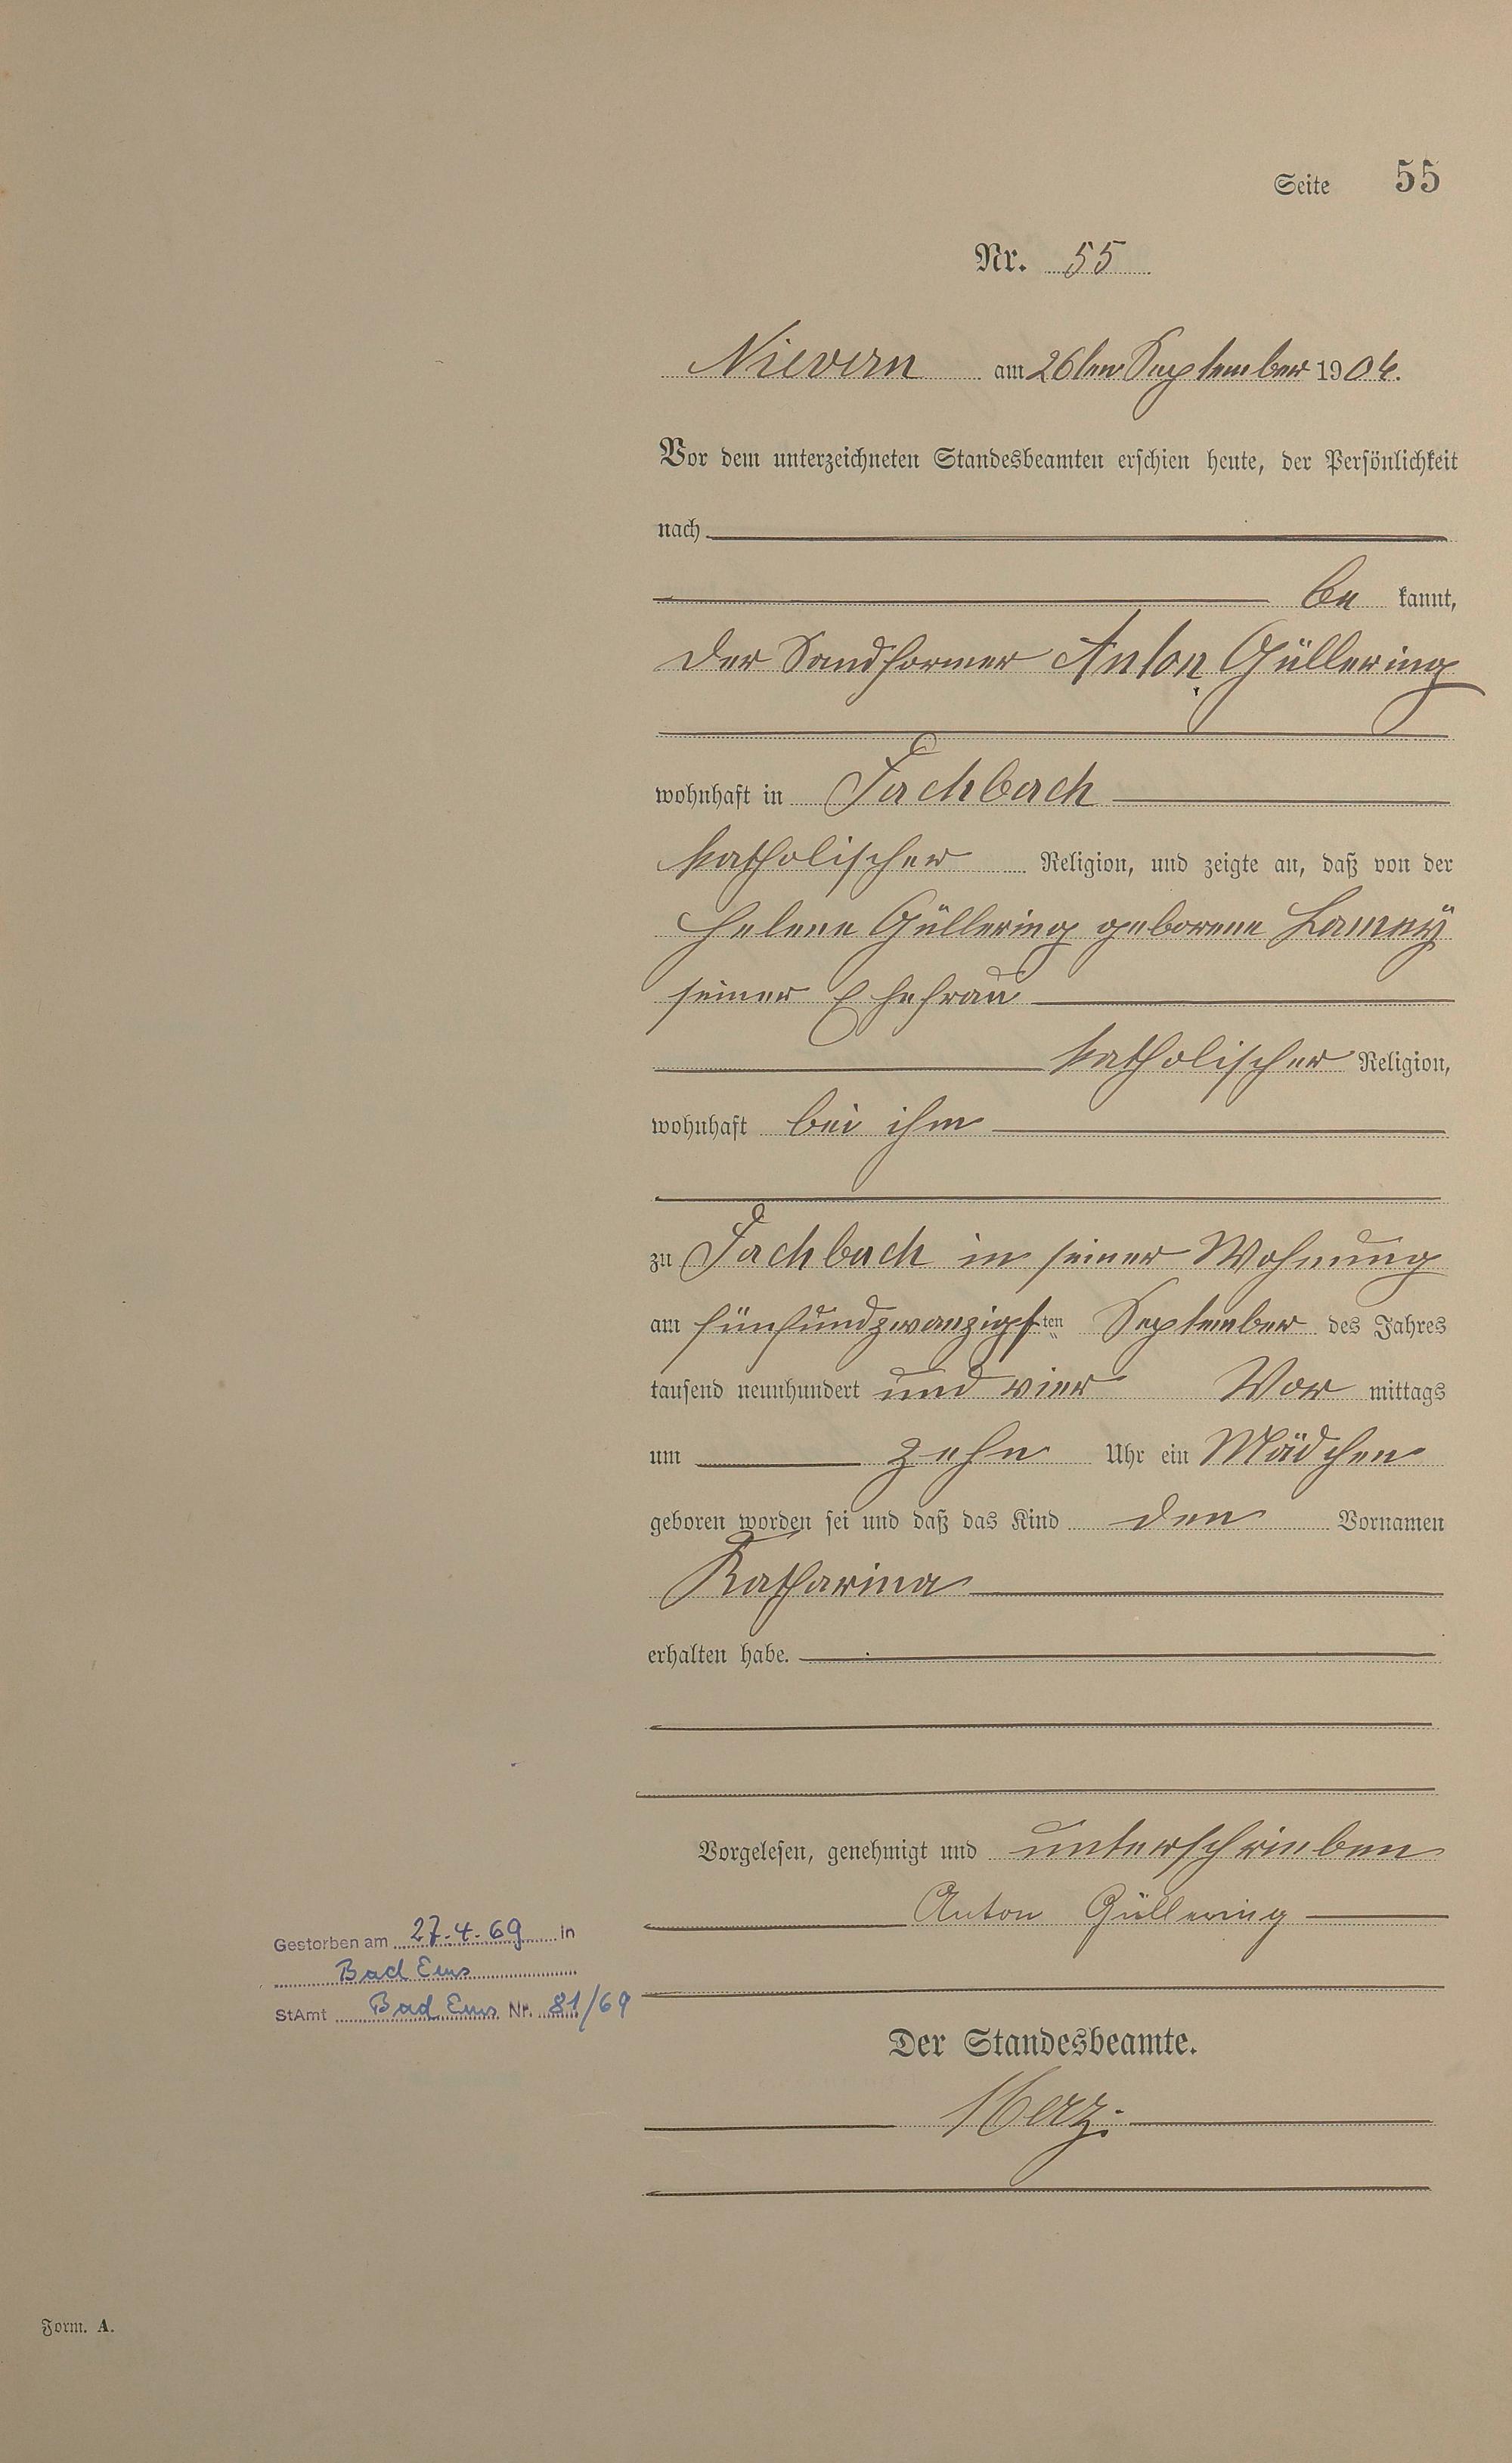 Seite 55
Nr. 55
Nievern am 26ten September 1904.
Vor dem unterzeichneten Standesbeamten erschien heute, der Persönlichkeit
nach
be kannt,
der Sandformer Anton Güllering
wohnhaft in Fachbach
katholischer Religion, und zeigte an, daß von der
Helene Güllering geborene Lamay
seiner Ehefrau
katholischer Religion,
wohnhaft bei ihm
zu Fachbach in seiner Wohnung
am fünfundzwanzigsten September des Jahres
tausend neunhundert und vier Vor mittags
um zehn Uhr ein Mädchen
geboren worden sei und daß das Kind den Vornamen
Katharina
erhalten habe.
Vorgelesen, genehmigt und unterschrieben
Anton Güllering
Der Standesbeamte.
Gestorben am 27.4.69 in
Bad Ems
StAmt Bad Ems Nr. 81/69
Form. A.